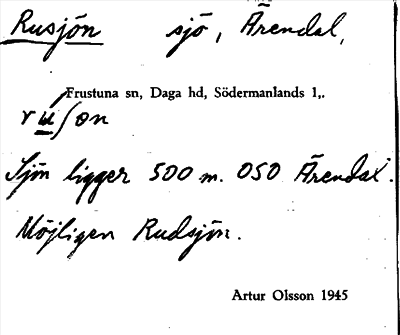 Rusjön sjö, Ärendal,
Frustuna sn, Daga hd, Södermanlands l,.
Sjön ligger 500 m. OSO Ärendal.
Möjligen Rudsjön.
Artur Olsson 1945